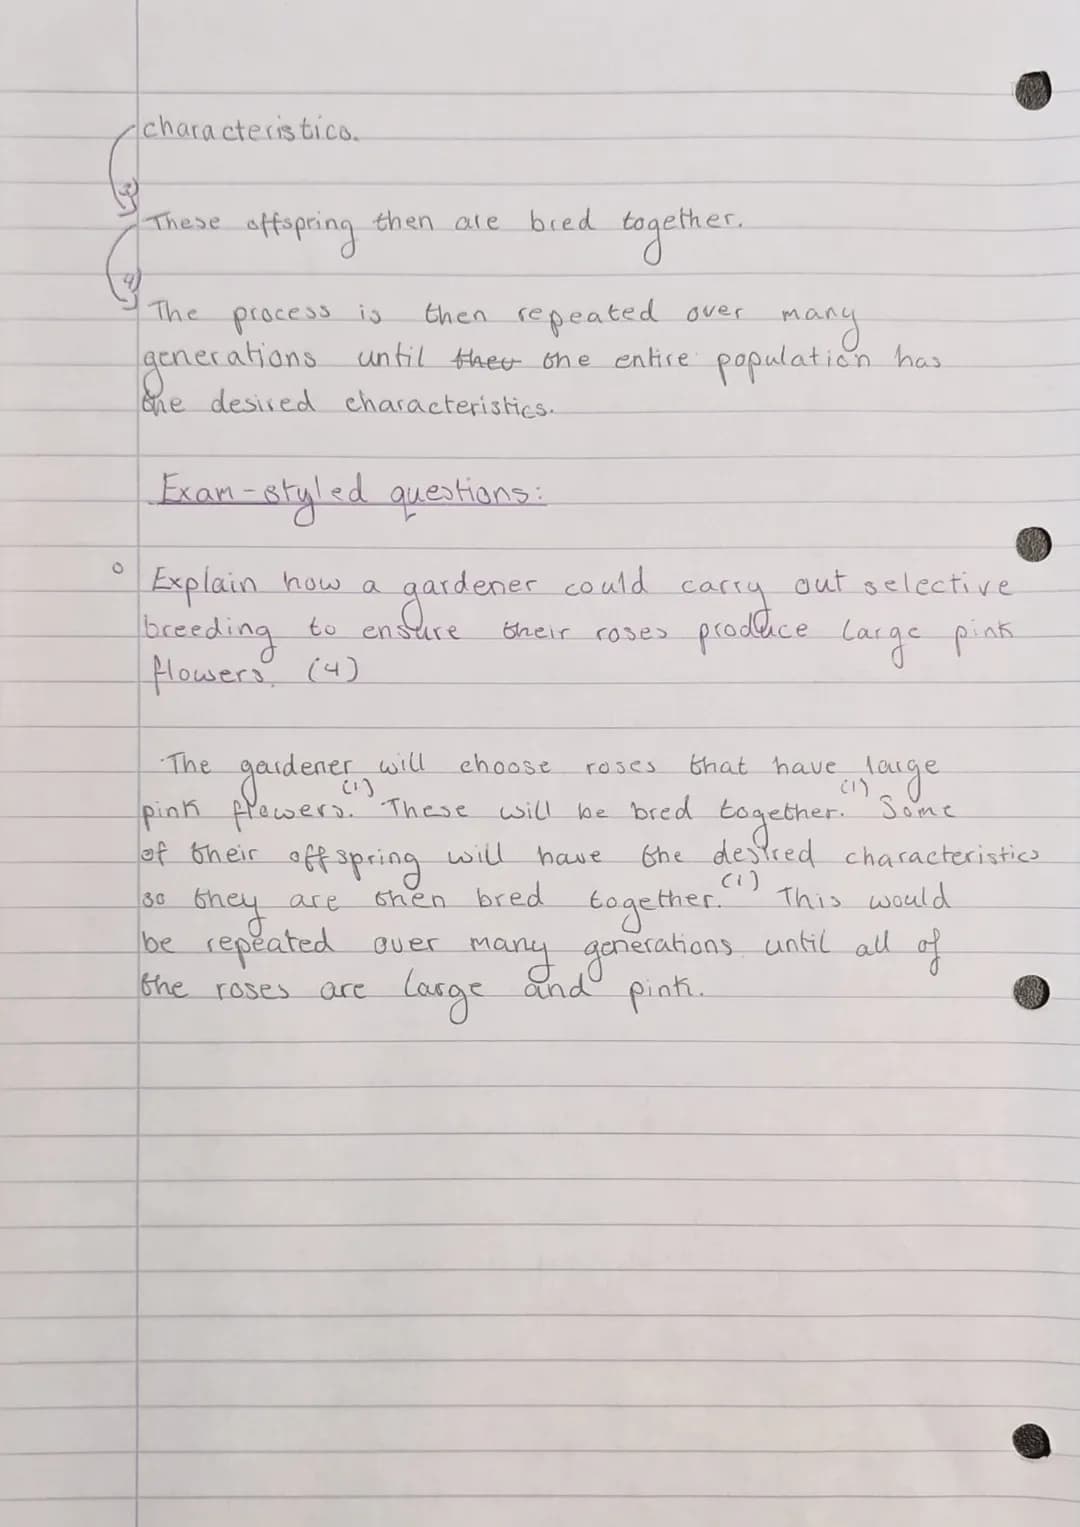 characteristics.
3)
These offspring then are bred together.
4)
The process is then repeated over many
generations until they the entire population has
the desired characteristics.
Exam-styled questions:
Explain how a gardener could carry out selective
breeding to ensure their roses produce large pink
flowers. (4)
The gardener will choose roses that have large
pink flowers. (1) These will be bred together. (1) Some
of their offspring will have the desired characteristics
so they are then bred together. (1) This would
be repeated over many generations until all of
the roses are large and pink.